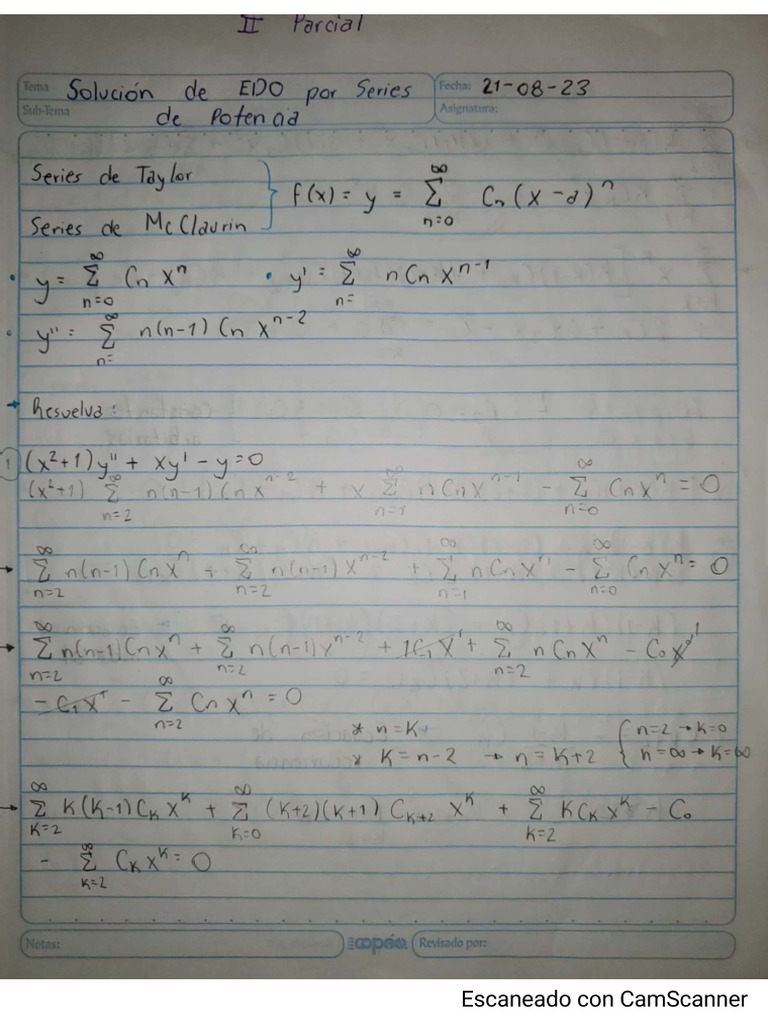 II Parcial
Tema Solución de EDO por Series
Fecha: 21-08-23
Sub-Tema de Potencia
Asignatura:
Series de Taylor
f(x) = y = ∑_{n=0}^{∞} Cn (x-a)^n
Series de McClaurin
• y = ∑_{n=0}^{∞} Cn x^n • y' = ∑_{n=}^{∞} n Cn x^{n-1}
• y'' = ∑_{n=}^{∞} n(n-1) Cn x^{n-2}
→ Resuelva:
1 (x²+1)y'' + xy' - y = 0
(x²+1) ∑_{n=2}^{∞} n(n-1) Cn x^{n-2} + x ∑_{n=1}^{∞} n Cn x^{n-1} - ∑_{n=0}^{∞} Cn x^n = 0
→ ∑_{n=2}^{∞} n(n-1) Cn x^n + ∑_{n=2}^{∞} n(n-1) x^{n-2} + ∑_{n=1}^{∞} n Cn x^n - ∑_{n=0}^{∞} Cn x^n = 0
→ ∑_{n=2}^{∞} n(n-1) Cn x^n + ∑_{n=2}^{∞} n(n-1) x^{n-2} + 1C₁x¹ + ∑_{n=2}^{∞} n Cn x^n - C₀
- C₁x¹ - ∑_{n=2}^{∞} Cn x^n = 0
* n = K n=2 → K=0
* K = n-2 → n = K+2 n=∞ → K=∞
→ ∑_{K=2}^{∞} K(K-1) C_K x^K + ∑_{K=0}^{∞} (K+2)(K+1) C_{K+2} x^K + ∑_{K=2}^{∞} K C_K x^K - C₀
- ∑_{K=2}^{∞} C_K x^K = 0
Notas:
copán
Revisado por:
Escaneado con CamScanner